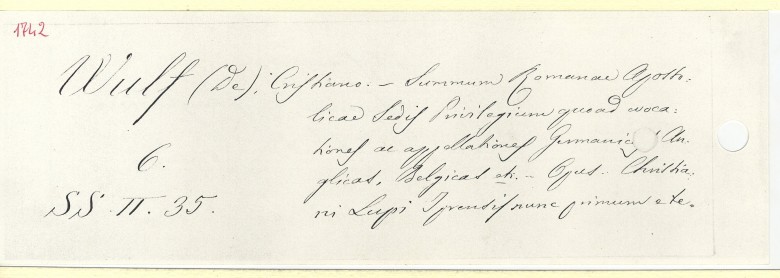 1742
Wulf (De), Cristiano. – Summum Romanae Aposto:
licae Sedis Privilegium quoad evoca:
tiones ac appellationes Germanic An:
6.
glicas, Belgicas etc. – Opus Christia:
SS. II. 35.
ni Lupi Iprensis nunc primum e te=